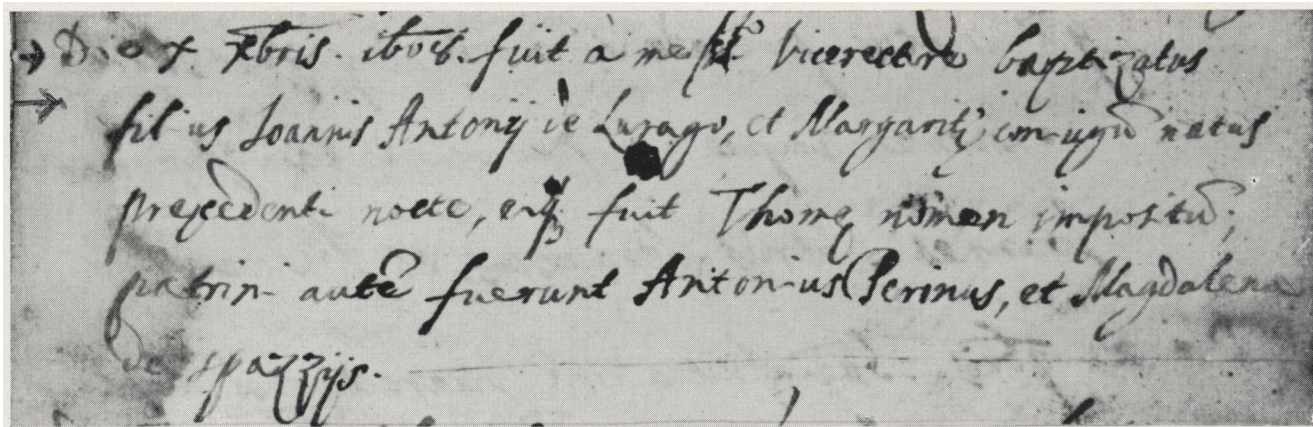 Die x Xbris. 1608. fuit a me Vicerectore baptizatus
filius Joannis Antonij de Lurago, et Margaritę coniugũ natus
precedenti nocte, eiq; fuit Thomę nomen impositũ;
patrini autẽ fuerunt Antonius Perinus, et Magdalena
de spazzijs.